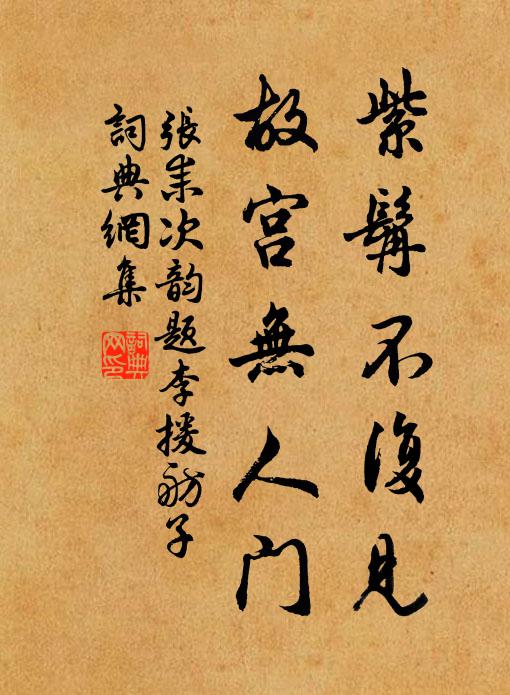 紫髯不復見
故宮無人門
張耒次韵題李援舫子
詞典網集
詞典网印